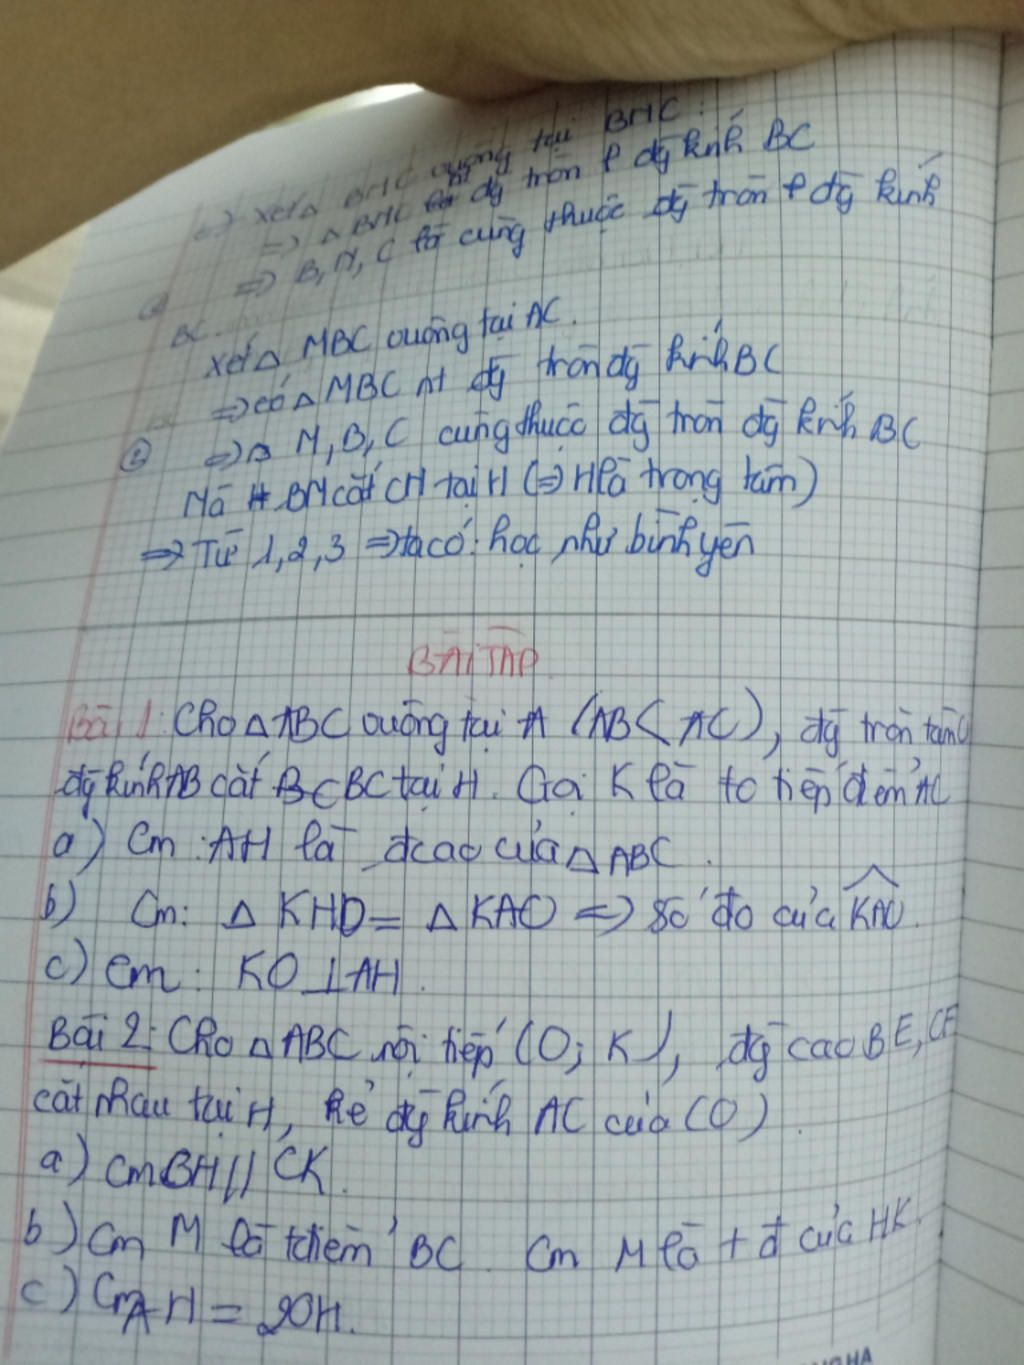 => xét △ BHC vuông tại BHC :
=> △ BHC nt đg tròn f đg kính BC
=> B, H, C là cùng thuộc đg tròn f đg kính
BC.
Xét △ MBC vuông tại AC.
=> có △ MBC nt đg tròn đg kính BC
③ => △ M, B, C cùng thuộc đg tròn đg kính BC
Mà H BM cắt CH tại H (=> H là trọng tâm)
=> Từ 1, 2, 3 => ta có: học như bình yên
BÀI TẬP
Bài 1: Cho △ ABC vuông tại A (AB < AC), đg tròn tâm O
đg kính AB cắt BC BC tại H. Gọi K là to tiếp điểm AC
a) Cm : AH là đcao của △ ABC.
b) Cm: △ KHO = △ KAO => số đo của KAO.
c) Cm : KO ⊥ AH.
Bài 2: Cho △ ABC nội tiếp (O; K), đg cao BE, CF
cắt nhau tại H, kẻ đg kính AC của (O).
a) Cm BH // CK.
b) Cm M là tđiểm BC. Cm M là t đ của HK.
c) Cm AH = 2OH.